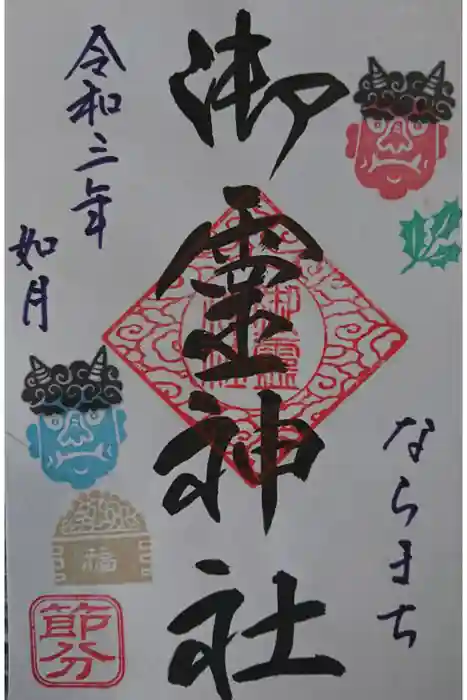 ならまち
御霊神社
御霊
神社
令和三年
如月
福
節分